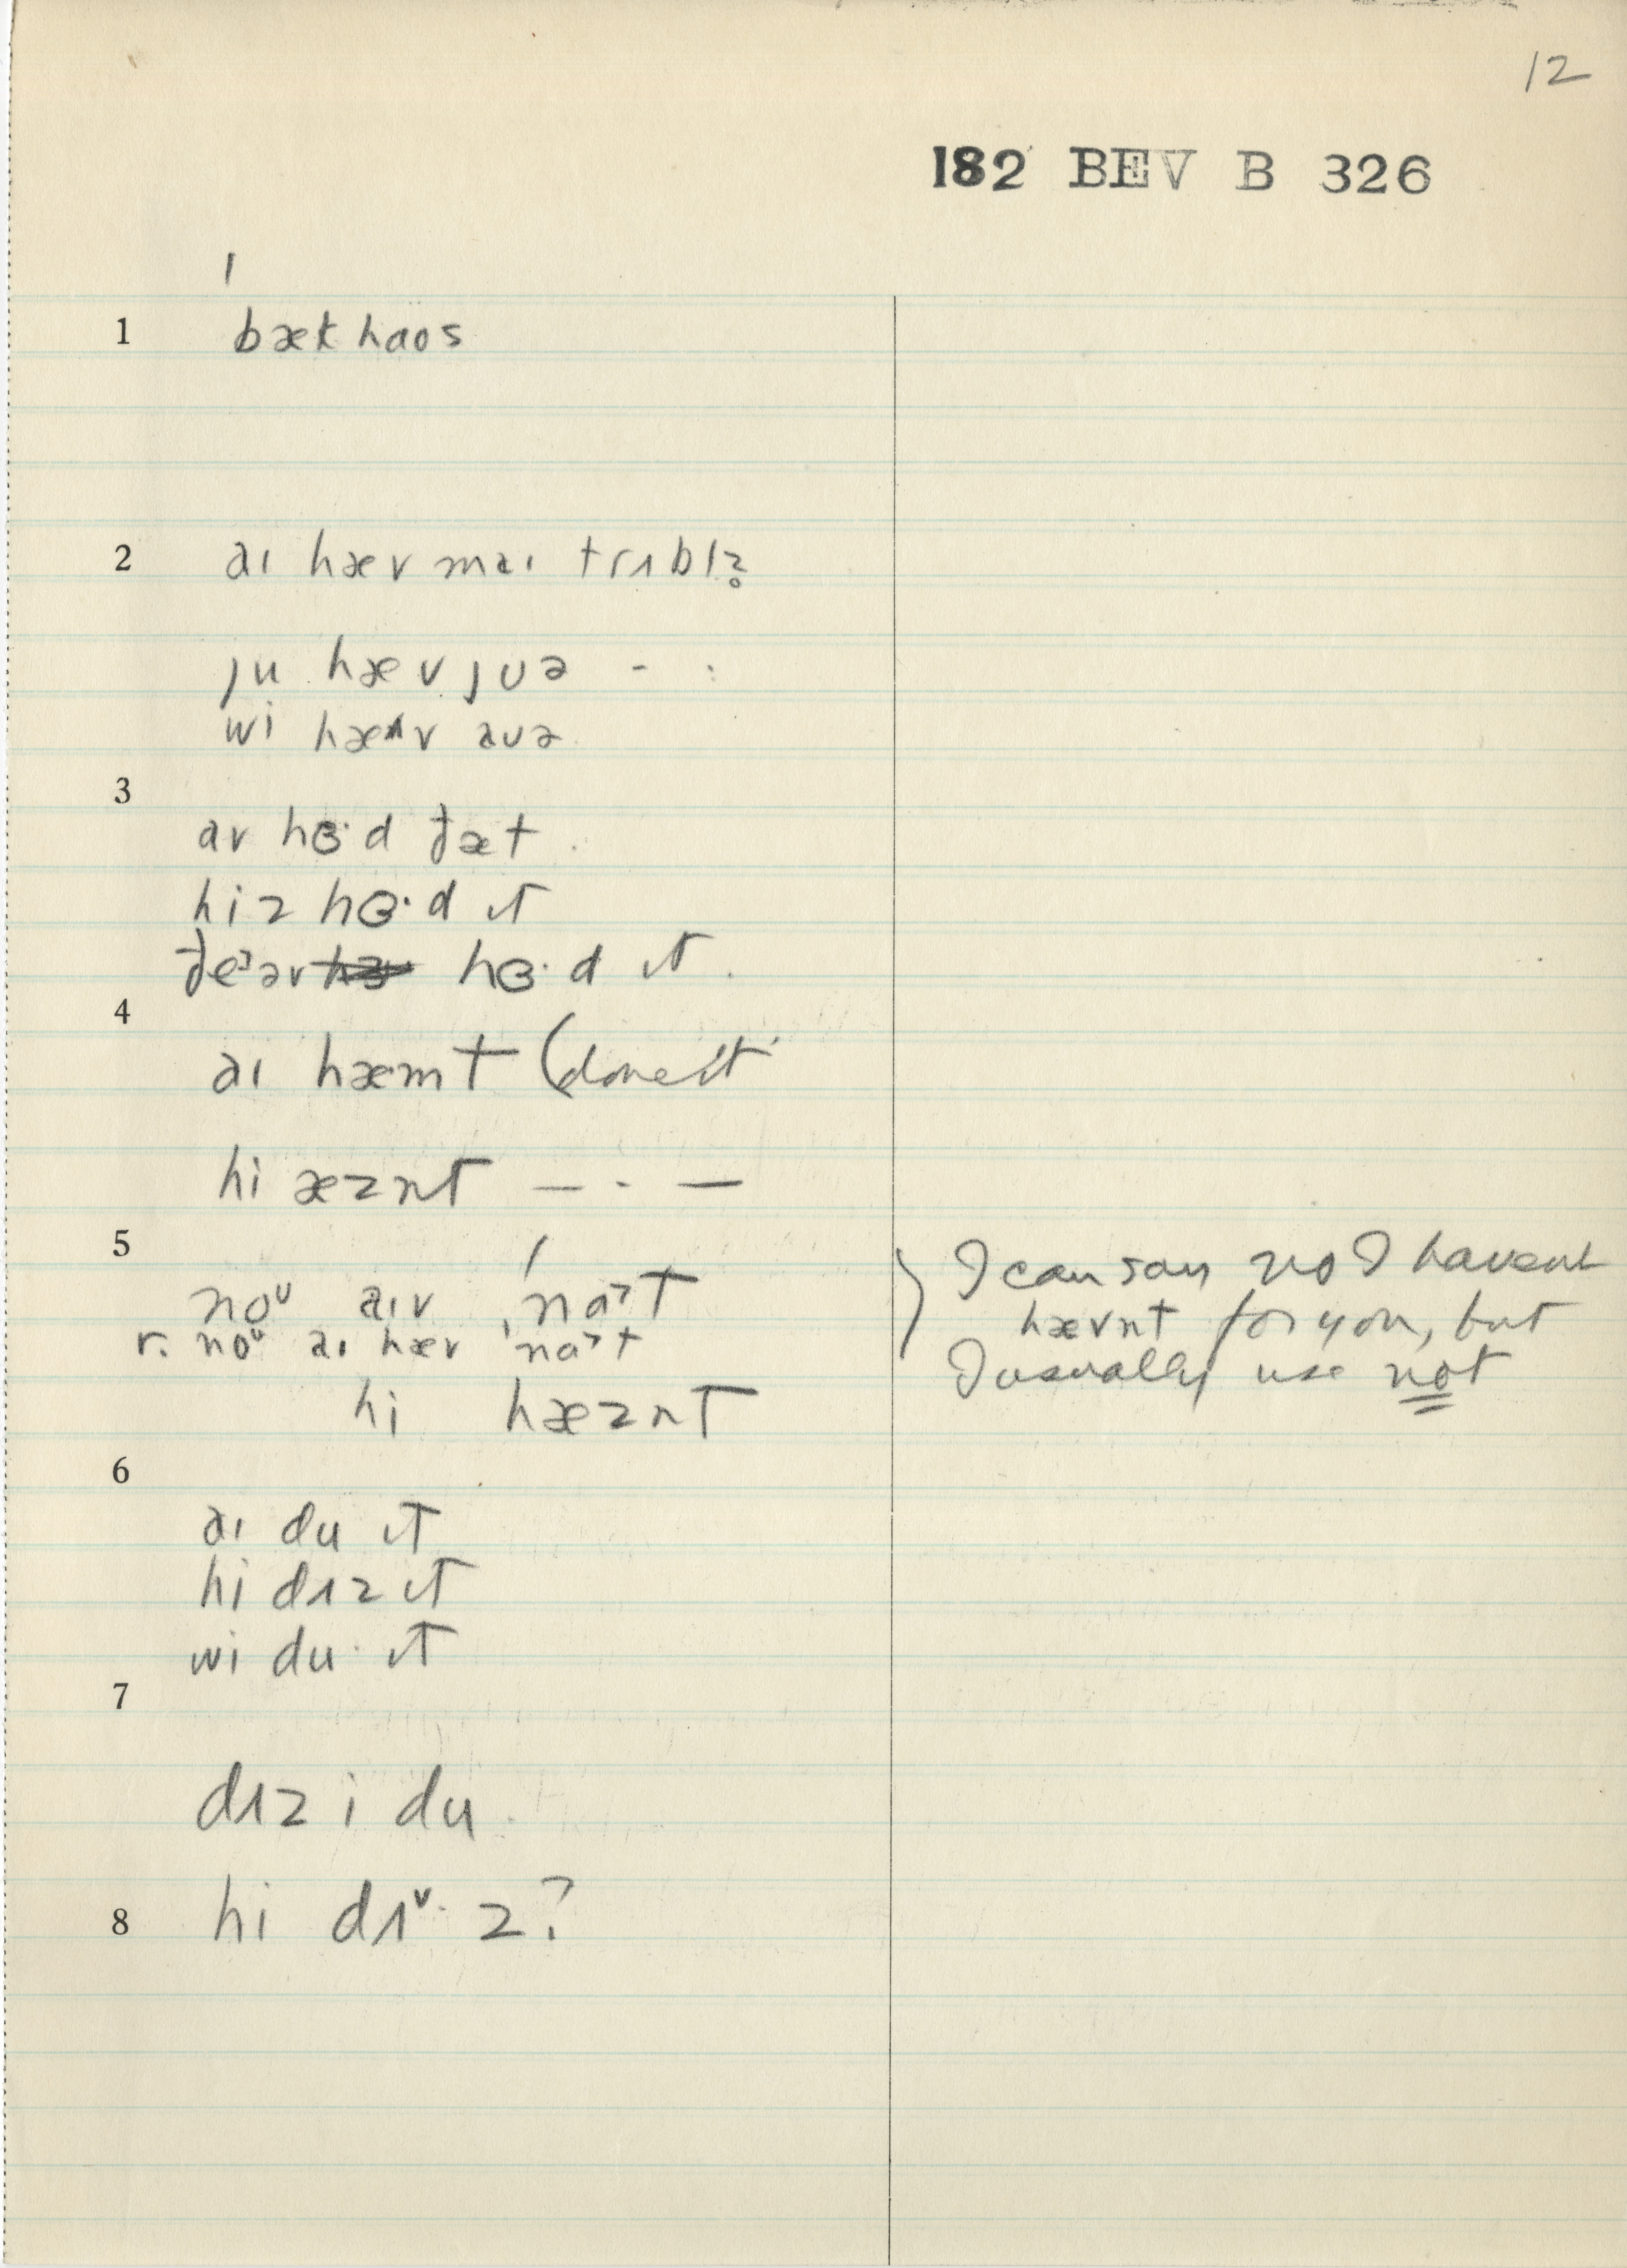 12
182 BEV B 326
1 ˈbækhaos
2 aɪ hæv maɪ trʌbl̥z
ju hæv jʊə - - :
wi hæv aʊə
3
av hɜ·d ðæt
hiz hɜ·d ɪt
hɜ·d ɪt
4
aɪ hæmt (done it
hi æznt — - —
5
noᵘ aɪv ˌnɑ˃t
r. noᵘ aɪ hæv ˈnɑ˃t
hi hæznt
I can say no I havent
hævnt for you, but
I usually use not
6
aɪ du ɪt
hi dʌz ɪt
wi du· ɪt
7
dʌz i du
8 hi dʌ˅· z?